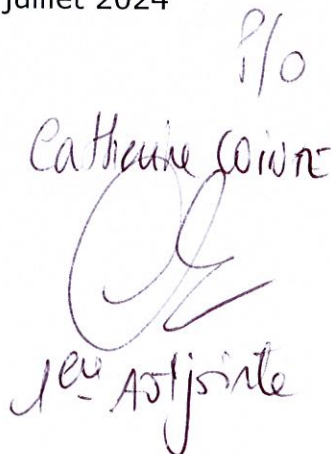 juillet 2024
P/O
Catherine COINTE
1ère Adjointe